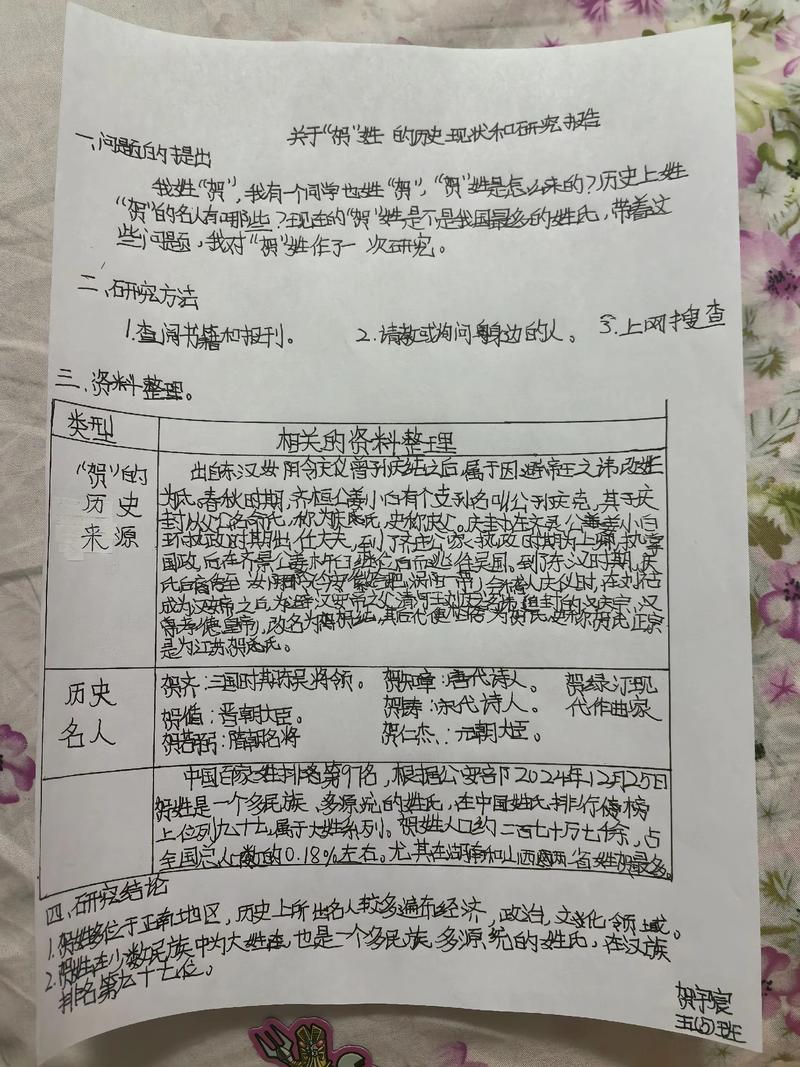 关于"贺"姓的历史现状和研究报告
一、问题的提出
我姓"贺",我有一个同学也姓"贺","贺"姓是怎么来的?历史上姓
"贺"的名人有哪些?现在的"贺"姓是不是我国最多的姓氏,带着这
些问题,我对"贺"姓作了一次研究。
二、研究方法
1.查阅书籍和报刊。 2.请教或询问身边的人。 3.上网搜查
三.资料整理。
类型 相关的资料整理
"贺"的
历史
来源
出自东汉 阴令庆仪曾孙庆纯之后,属于因避帝王之讳改姓
为氏。春秋时期,齐桓公姜小白有个支列名叫公子庆克,其子庆
封以父名命氏,称为庆氏,史称庆父。庆封在齐 公姜
执政时期出任大夫,到了齐庄公 执政时期为上卿,执掌
国政,后在齐景公姜杵臼继位后而逃往吴国。到了东汉时期,庆
氏 传至 令 ,庆仪时,在刘祜
成为汉安帝之后,为避汉安帝之父清河王刘庆名讳
德皇帝),改名为贺 ,其后代便 为贺氏,史称贺氏正宗
是为江苏贺氏。
历史
名人
贺齐:三国时期东吴将领。 贺知章:唐代诗人。 贺绿汀现
贺循:晋朝大臣。 贺铸:宋代诗人。 代作曲家
贺若弼:隋朝名将 贺仁杰:元朝大臣。
中国百家姓排名第97名,根据公安部2024年12月25日
贺姓是一个多民族、多源流的姓氏,在中国姓氏排行榜
上位列九十七,属于大姓系列。贺姓人口约二百七十万七千余,占
全国总人数的0.18%左右。尤其在湖南和山西两省姓贺最多。
四、研究结论
1.贺姓多位于正南地区,历史上所出名人较多遍布经济,政治,文化领域。
2.贺姓在少数民族中为大姓 也是一个多民族,多源统的姓氏,在汉族
排名第九十七位。
贺宇宸
五(5)班